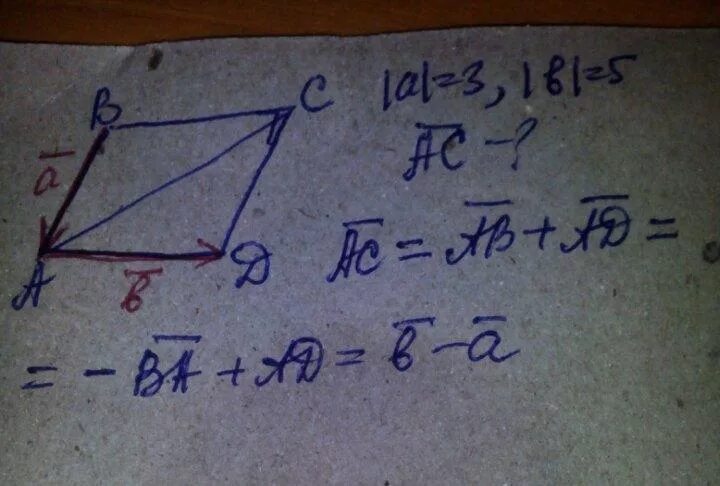 B C
a̅
A b̅ D
|a|=3, |b|=5
A̅C̅ - ?
A̅C̅ = A̅B̅ + A̅D̅ =
= - B̅A̅ + AD = b̅ - a̅